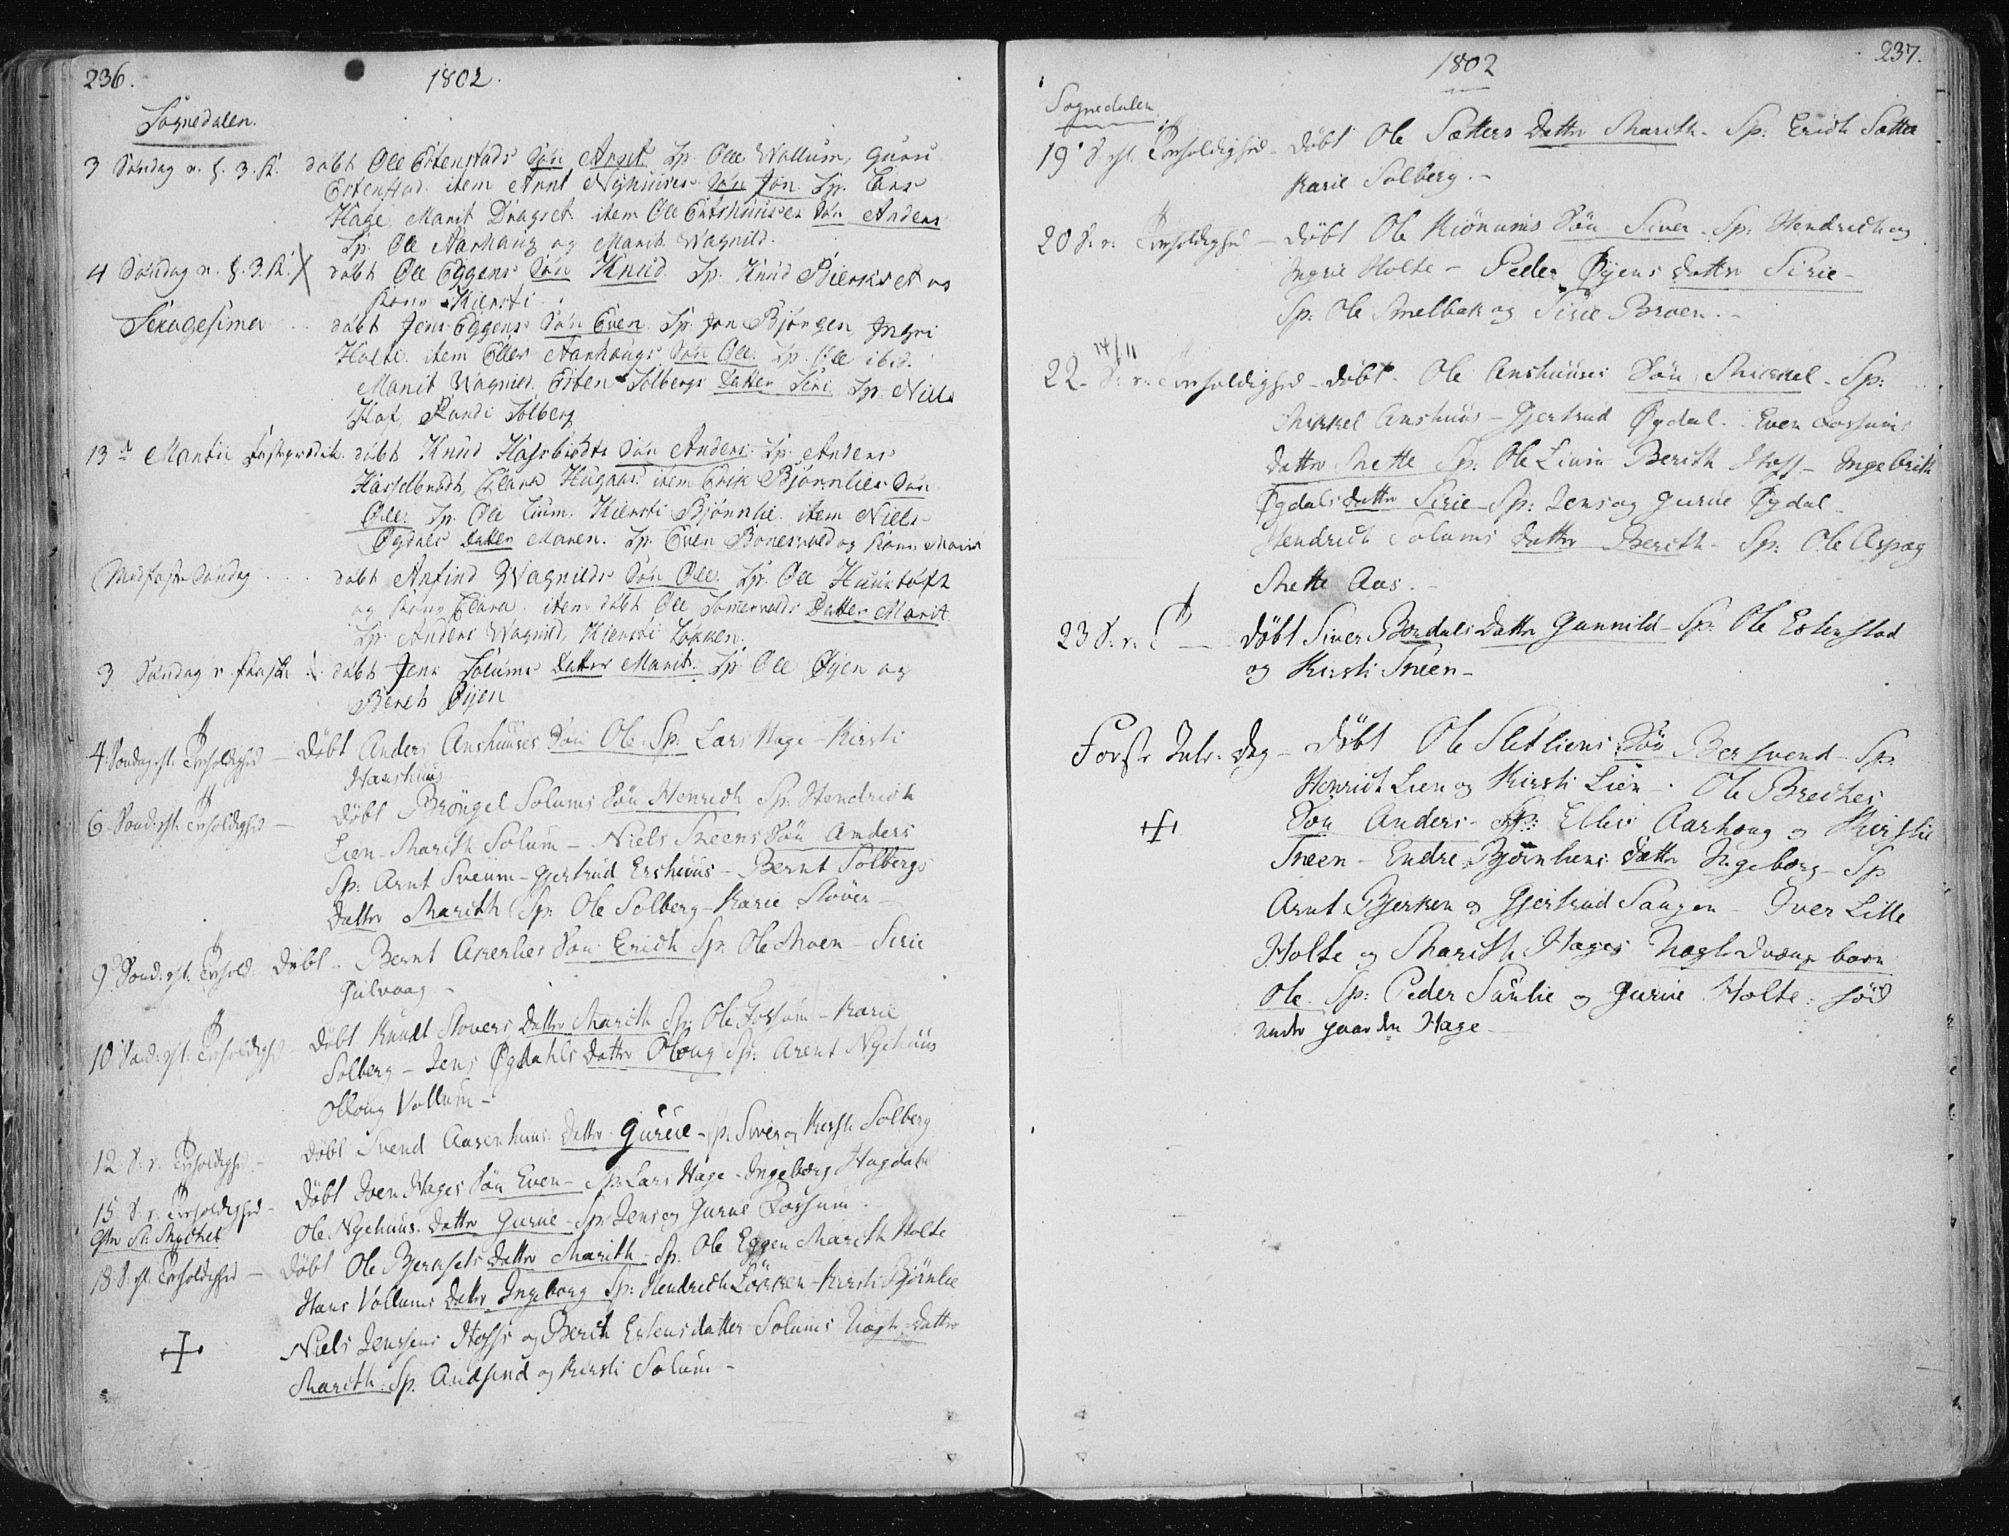 236.
1802.
Sognedalen.
3 Søndag n. h. 3. K. døbt Ole Estenstads Søn Arnt Sp. Ole Wollum, Guru
Estenstad. item Arnt Nyhuuses Søn Jon. Sp. Lars
Hage, Marit Dragset. item Ole Endshuuses Søn Anders
Sp. Ole Aarhaug og Marit Wagnild.
4 Søndag n. h. 3. K. døbt Ole Eggens Søn Knud. Sp. Knud Bierkset og
Kone Kiersti.
Sexagesima .. døbt Jens Eggens Søn Even Sp. Jon Bjørgen Ingri
Holte. item Ellev Aarhaugs Søn Ole. Sp. Ole ibid.
Marit Wagnild. Esten Solbergs Datter Siri Sp. Niels
Hof, Randi Solberg
13de Martii døbt Knud Hasselbredts Søn Anders. Sp. Anders
Hasselbredt, Clara Hagaas. item Erik Bjørnlies Søn
Ole. Sp. Ole Lium. Kiersti Bjørnlie. item Niels
Øgdals Datter Maren. Sp. Even Bonesvold og Kone Marit
Midfaste Søndag .... døbt Anfind Wagnilds Søn Ole. Sp. Ole
og Kone Clara. item døbt Ole Somervolds Datter Marit.
Sp. Anders Wagnild, Kiersti Løkken.
3 Søndag n. Paaske døbt Jens Solums Datter Marit. Sp. Ole Øyen og
Bereth Øyen
4. Søndag eft. Trefoldighed — Døbt Anders Anshuuses Søn Ole. Sp. Lars Hage - Kirsti
Hanshuus
6 Sønd. eft. Trefoldighed — døbt Brøngel Solums Søn Henrich Sp. Hendrich
Lien - Marith Solum - Niels Sneens Søn Anders
Sp. Arnt Sveum - Gjertrud Enshuus - Bernt Solbergs
Datter Marith Sp. Ole Solberg - Karie Støver -
9. Sønd. eft. Trefold. Døbt - Bernt Aspenlies Søn Erich Sp. Ole Moen - Sirie
Gulvaag -
10 Sønd. eft. Trefoldighed Døbt Knudt Støvers Datter Marith Sp. Ole Fossum - Karie
Solberg - Jens Øgdahls Datter Oloug Sp. Arent Nyehuus
Oloug Vollum -
12 S. e. Trefoldighed - Døbt Svend Aasenhuus Datter Gurue - Sp. Siver og Kirsti Solberg
15 S. e. Trefoldighed - Døbt Iver Hages Søn Even - Sp. Lars Hage - Ingeborg Hagdahl
Ole Nyehuus. Datter Gurue - Sp. Jens og Gurue Fossum.
18 S. eft. Trefoldighed — Døbt Ole Bjerksets Datter Marith - Sp. Ole Eggen Marith Holte
Hans Vollums Datter Ingeborg Sp. Hendrich Løkken - Kirsti Bjørnlie
Niels Jenssens Hofs og Berith Estensdatter Solums Uægte Datter
Marith. Sp. Andfind og Kirsti Solum -
237.
1802
Sognedalen
19 S. eft. Trefoldighed - Døbt Ole Sætters Datter Marith - Sp: Erich Sætter
Karie Solberg. -
20 S. e. Trefoldighed - Døbt Ole Kiønums Søn Siver - Sp: Hendrich og
Ingrie Holte - Peder Øyens Datter Sirie -
Sp. Ole Smelbak og Sirie Broen. -
14/11
22. S. e. Trefoldighed - døbt. Ole Anshuuses Søn Mikkel - Sp:
Mikkel Anshuus - Gjertrud Øgdal. Even Fossums
Datter Mette Sp. Ole Lium Berith Hoff - Ingebrigt
Øgdals datter Sirie - Sp: Jens og Gurue Øgdal -
Hendrich Solums datter Berith - Sp. Ole Aspaas
Mette Aas. -
23 S. e. T — Døbt Siver Bordals Datter Gunnild - Sp. Ole Estenstad
og Kirsti Sneen -
Første Jule Dag - Døbt Ole Sletliens Søn Bersvend - Sp:
Henrich Lien og Kirsti Lien - Ole Brecher
Søn Anders - Sp: Ellev Aarhoug og Kirstie
Sneen - Endre Bjørnliens Datter Ingeborg - Sp
Arnt Bjerken og Gjertrud Haugen - Iver Lille
Holte og Marith Hages Uægte Drænge barn
Ole. Sp: Peder Sunlie og Gurue Holte: fød
under gaarden Hage -